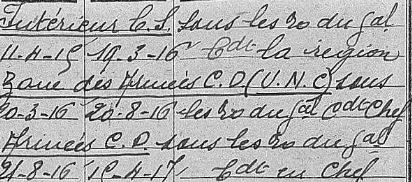 Intérieur C.S. sous les 20 du gal
11-4-15 19-3-16 Cdt la région
Zone des Armées C.D (U.N.C) sous
20-3-16 20-8-16 les 20 du gal Cdt Chef
Armées C.D. sous les 20 du gal
21-8-16 15-4-17 Cdt en Chef